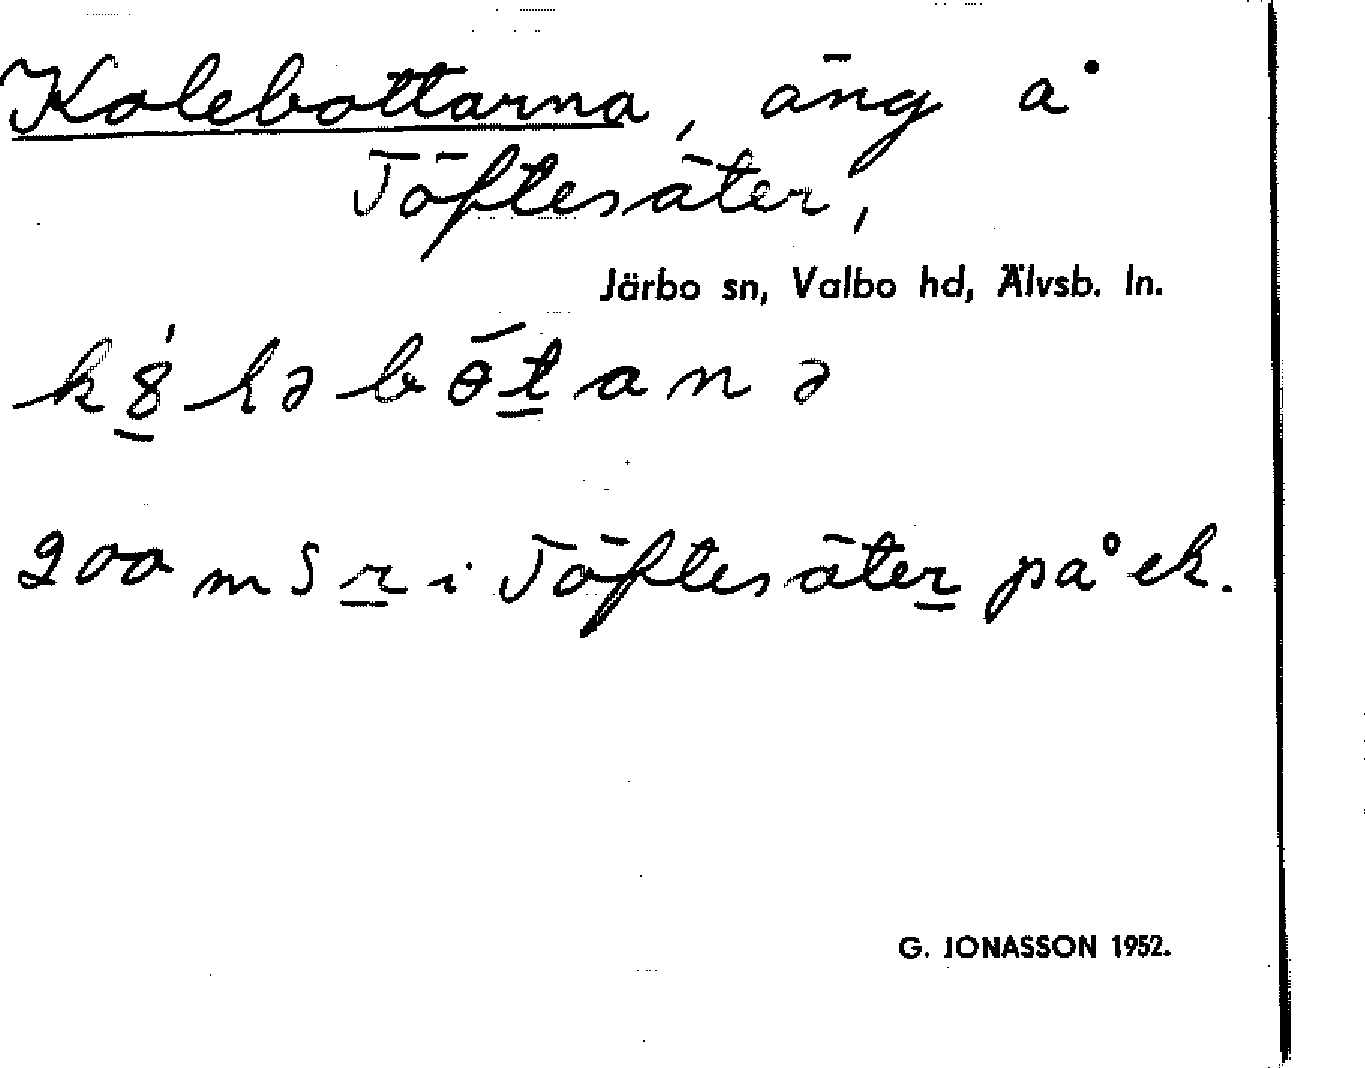 Kolebottarna, äng å
Töftesäter,
Järbo sn, Valbo hd, Älvsb. ln.
200 m S r i Töftesäter på ek.
G. JONASSON 1952.